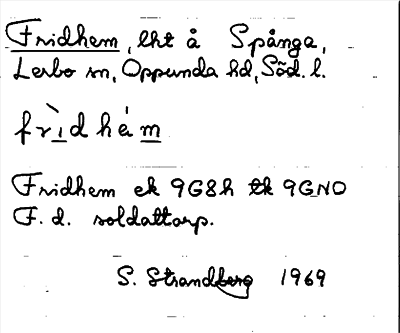 Fridhem, lht å Spånga,
Lerbo sn, Oppunda hd, Söd. l.
frìdhém
Fridhem ek 9G8h tk 9GNO
F. d. soldattorp.
S. Strandberg 1969